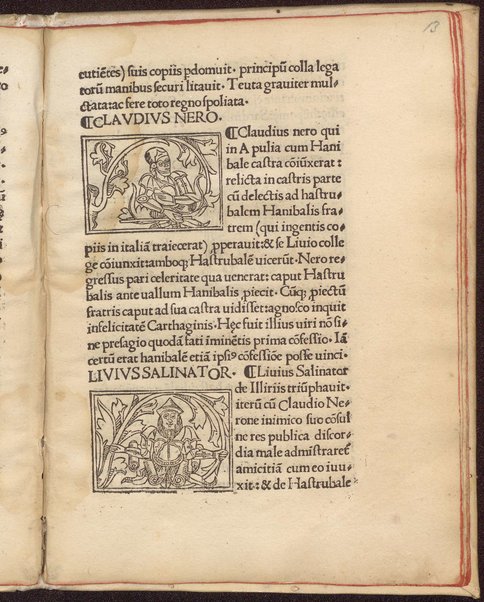 13
cutiētes) suis copiis pdomuit. principū colla lega
torū manibus securi litauit. Teuta grauiter mul-
ctata: ac fere toto regno spoliata.
¶CLAVDIVS NERO.
¶Claudius nero qui
in Apulia cum Hani
bale castra cōiūxerat:
relicta in castris parte
cū delectis ad hastru-
balem Hanibalis fra-
trem (qui ingentis co-
piis in italiā traiecerat) ꝓperauit: & se Liuio colle
ge cōiunxit: amboqꝫ Hastrubalē vicerūt. Nero re-
gressus pari celeritate qua uenerat: caput Hastru
balis ante uallum Hanibalis ꝓiecit. Cūqꝫ ꝓiectū
fratris caput ad sua castra uidisset: agnosco inquit
infelicitatē Carthaginis. Hęc fuit illius uiri nō si-
ne presagio quodā fati iminētis prima cōfessio. Iā
certū erat hanibalē etiā ipsiꝰ cōfessiōe posse uinci.
LIVIVS SALINATOR. ¶Liuius Salinator
de Illiriis triūphauit.
iterū cū Claudio Ne-
rone inimico suo cōsul
ne res publica discor-
dia male admīstraret̄
amicitiā cum eo iuu-
xit: & de Hastrubale